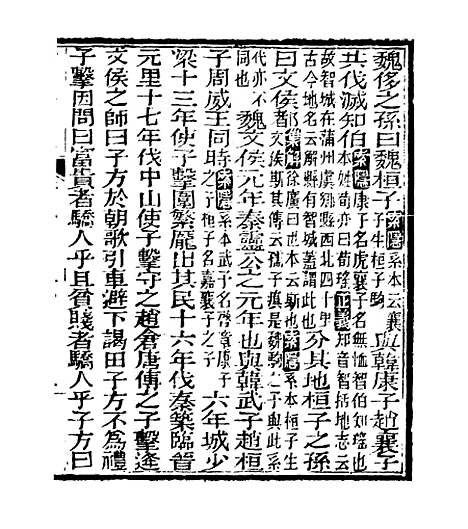 魏侈之孫曰魏桓子索隱系本云襄子生桓子駒與韓康子趙襄子
共伐滅知伯索隱康子名虎襄子名無恤智伯知瑤也本姓荀亦曰荀瑤正義知音智括地志云
故智城在蒲州虞鄉縣西北四十里古今地名云解縣有智城蓋謂此也分其地桓子之孫
曰文侯都集解徐廣曰世本云斯也索隱系本桓子生文侯斯其傳云孺子㿂是魏駒之子與此系
代亦不同也魏文侯元年秦靈公之元年也與韓武子趙桓
子周威王同時索隱系本武子名啓章康子子桓子名嘉襄子之子六年城少
梁十三年使子擊圍繁龐出其民十六年伐秦築臨晉
元里十七年伐中山使子擊守之趙倉唐傅之子擊逢
文侯之師田子方於朝歌引車避下謁田子方不為禮
子擊因問曰富貴者驕人乎且貧賤者驕人乎子方曰